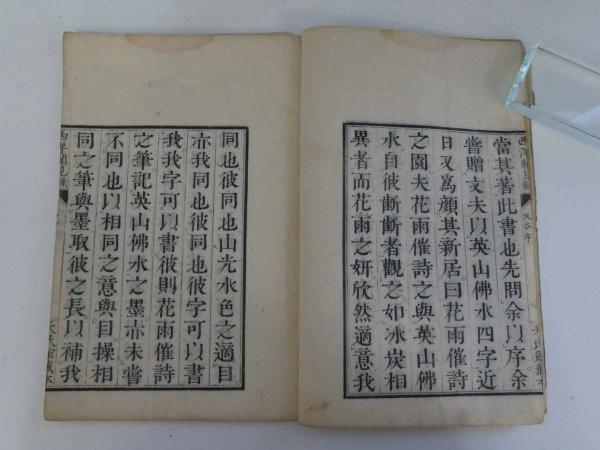 西洋聞見錄
當其著此書也先問余以序余
嘗贈文夫以英山佛水四字近
日又爲顏其新居曰花雨催詩
之園夫花雨催詩之與英山佛
水自彼斷斷者觀之如冰炭相
異者而花雨之妍欣然適意我
同也彼同也山光水色之適目
亦我同也彼同也彼字可以書
我我字可以書彼則花雨催詩
之筆記英山佛水之墨亦未嘗
不同也以相同之意與目操相
同之筆與墨取彼之長以補我
西洋聞見錄